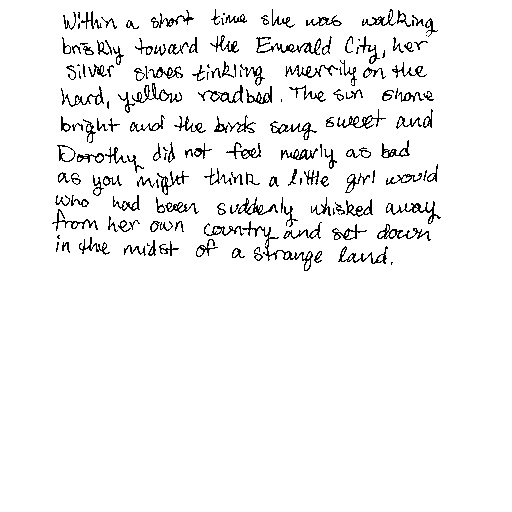 Within a short time she was walking
briskly toward the Emerald City, her
Silver shoes tinkling merrily on the
hard, yellow roadbed. The sun shone
bright and the birds sang sweet and
Dorothy did not feel nearly as bad
as you might think a little girl would
who had been suddenly whisked away
from her own country and set down
in the midst of a strange land.